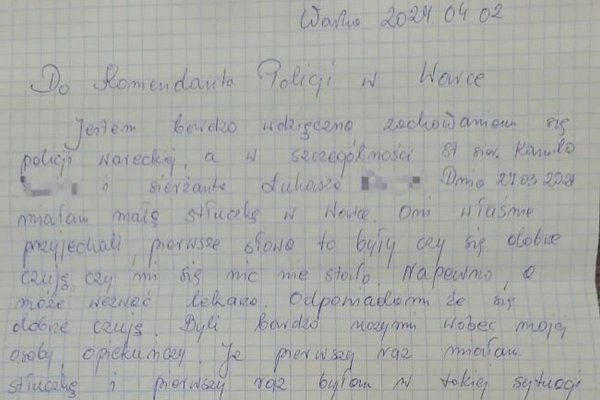 Warka 2024 04 02
Do Komendanta Policji w Warce
Jestem bardzo wdzięczna zachowaniem się
policji wareckiej, a w szczególności st sier. Kamila
i sierżanta Łukasza Dnia 27.03.2024
miałam małą stłuczkę w Warce. Oni właśnie
przyjechali, pierwsze słowa to były czy się dobrze
czuję, czy mi się nic nie stało napewno, a
może wezwać lekarza. Odpowiadam że się
dobrze czuję. Byli bardzo uczynni wobec mojej
osoby, opiekuńczy. Ja pierwszy raz miałam
stłuczkę i pierwszy raz byłam w takiej sytuacji